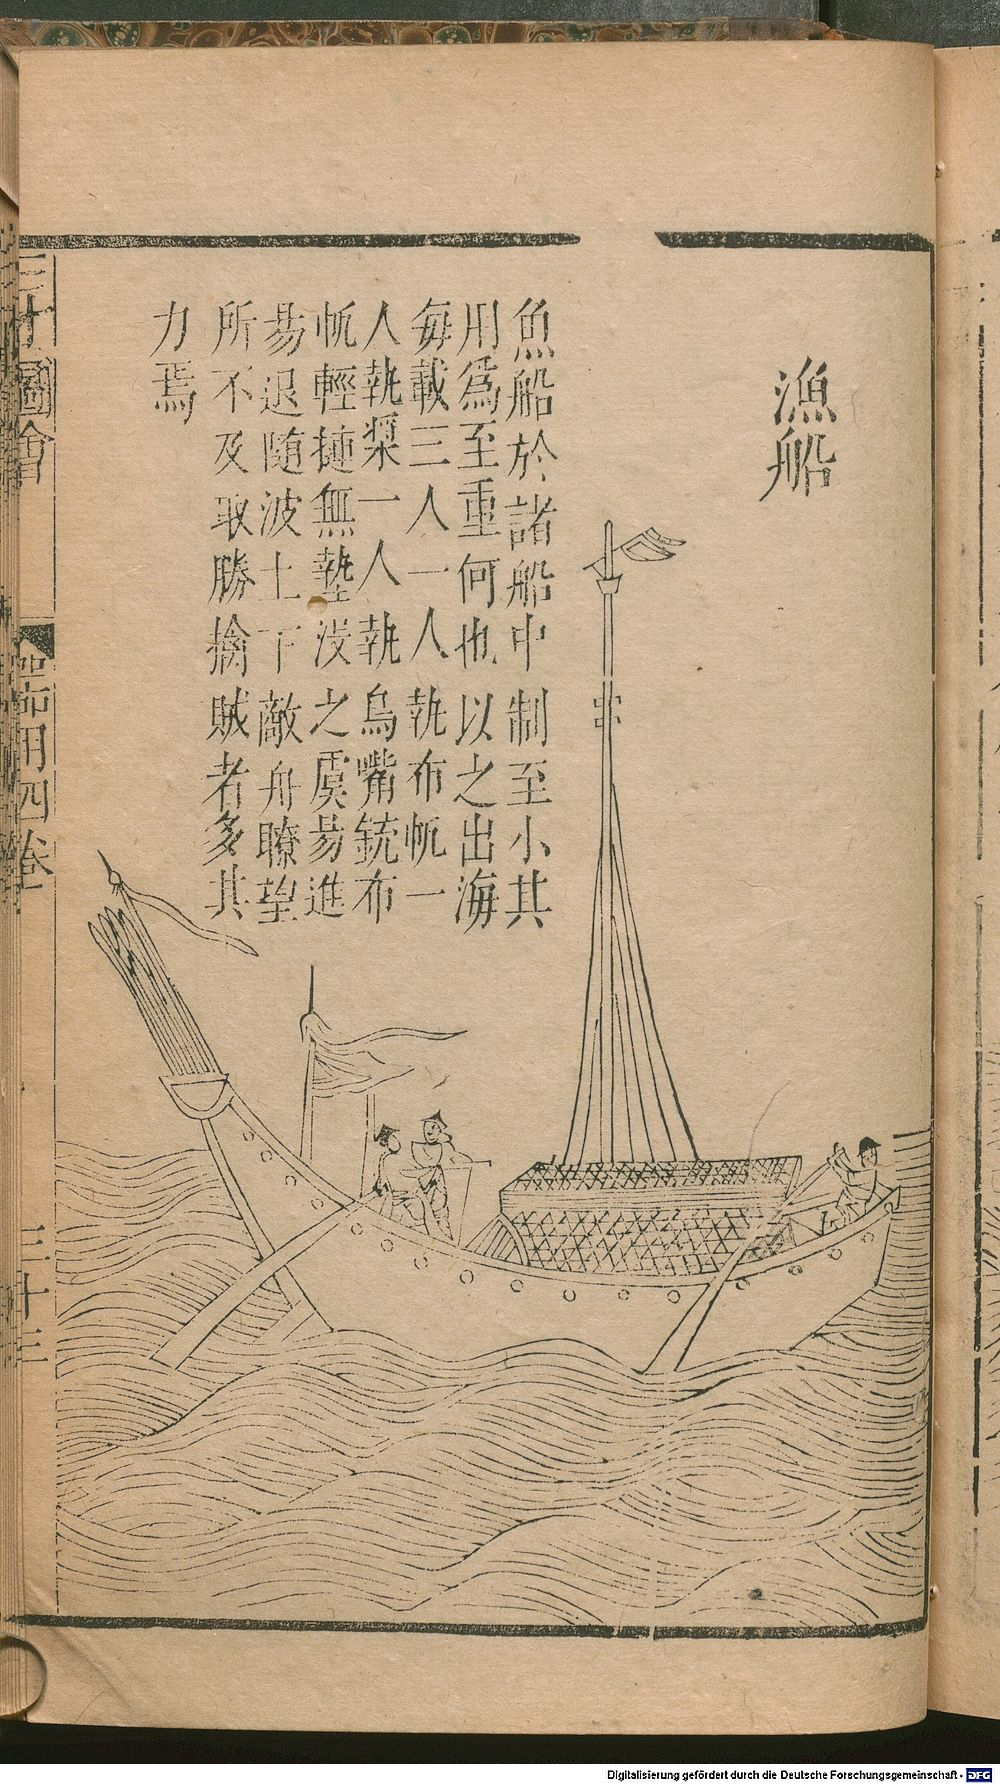 漁船
魚船於諸船中制至小其
用爲至重何也以之出海
每載三人一人執布帆一
人執槳一人執鳥嘴銃布
帆輕捷無墊沒之虞易進
易退隨波上下敵舟瞭望
所不及取勝擒賊者多其
力焉
三才圖會
器用四卷
三十三
Digitalisierung gefördert durch die Deutsche Forschungsgemeinschaft - DFG